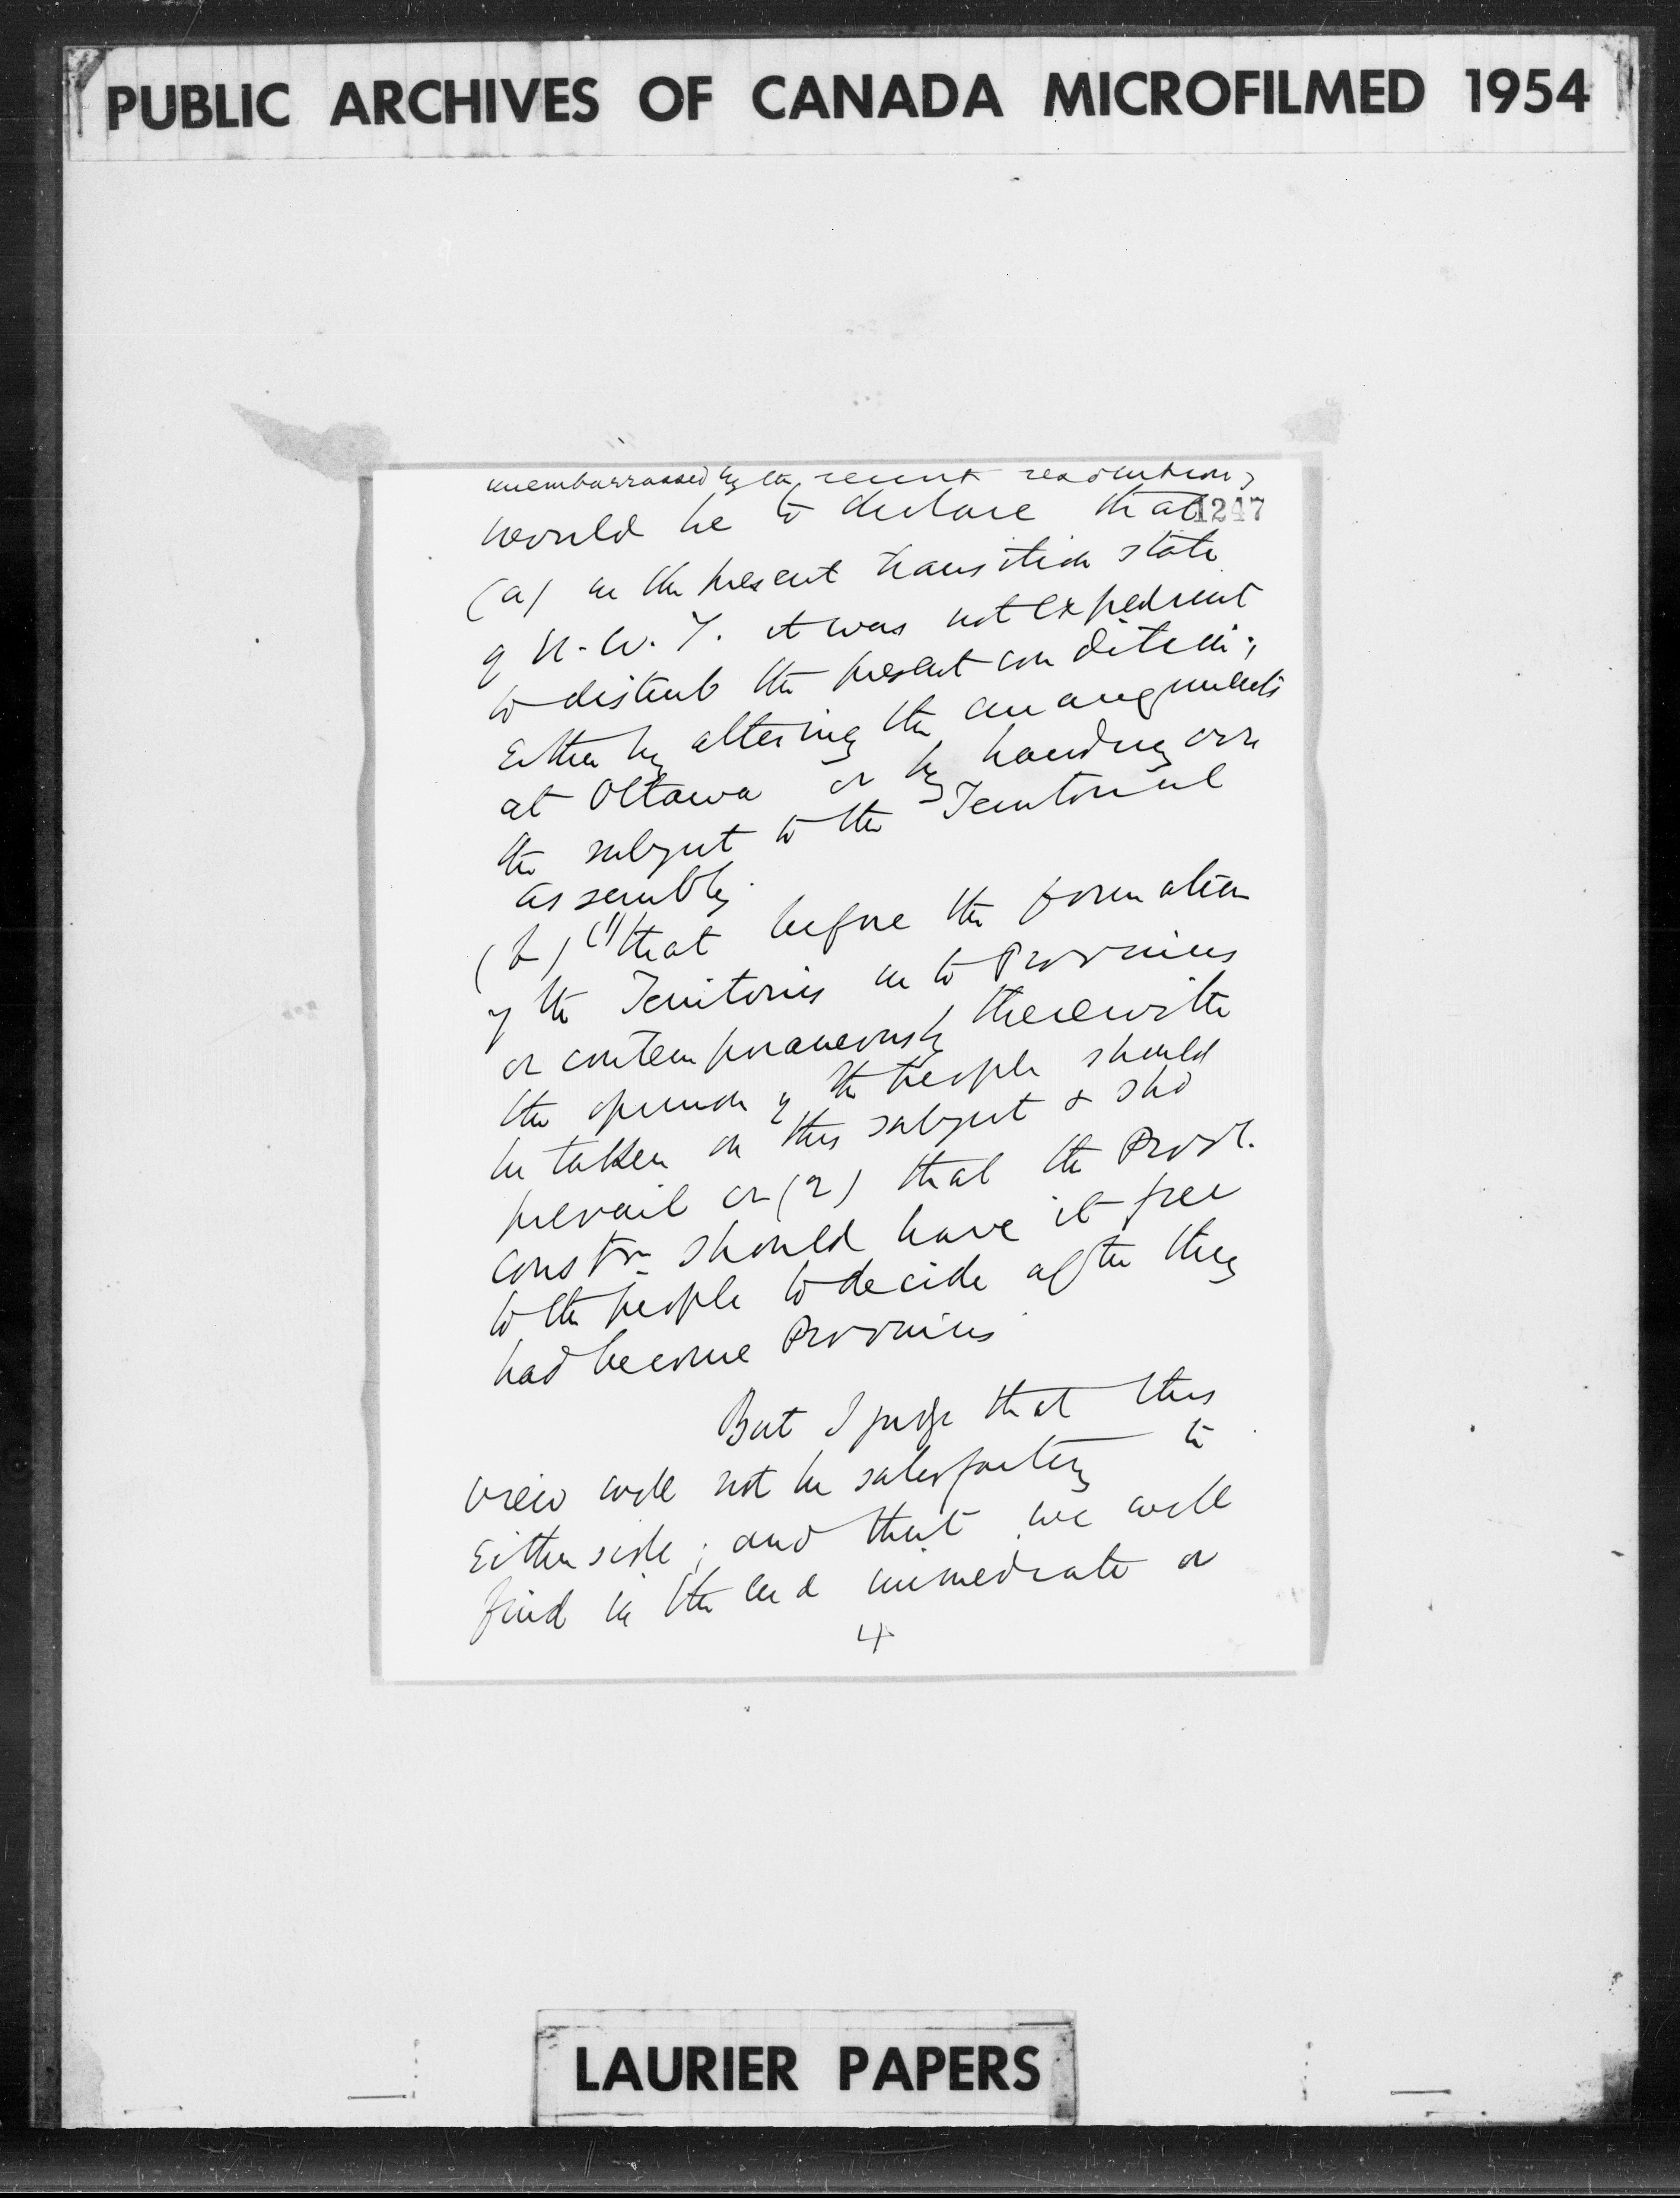 PUBLIC ARCHIVES OF CANADA MICROFILMED 1954
unembarrassed by the recent resolution,
would be to declare that
1247
(a) in the present transition state
of N.W.T. it was not expedient
to disturb the present condition;
Either by altering the arrangements
at Ottawa or by handing over
the subject to the Territorial
assembly.
(b) (1) that before the formation
of the Territories into Provinces
or contemporaneously therewith
the opinion of the people should
be taken on this subject & shd
prevail or (2) that the Provl.
constn. should leave it free
to the people to decide after they
had become Provinces
But I judge that this
view will not be satisfactory to
Either side; and that we will
find in the end immediate or
4
LAURIER PAPERS